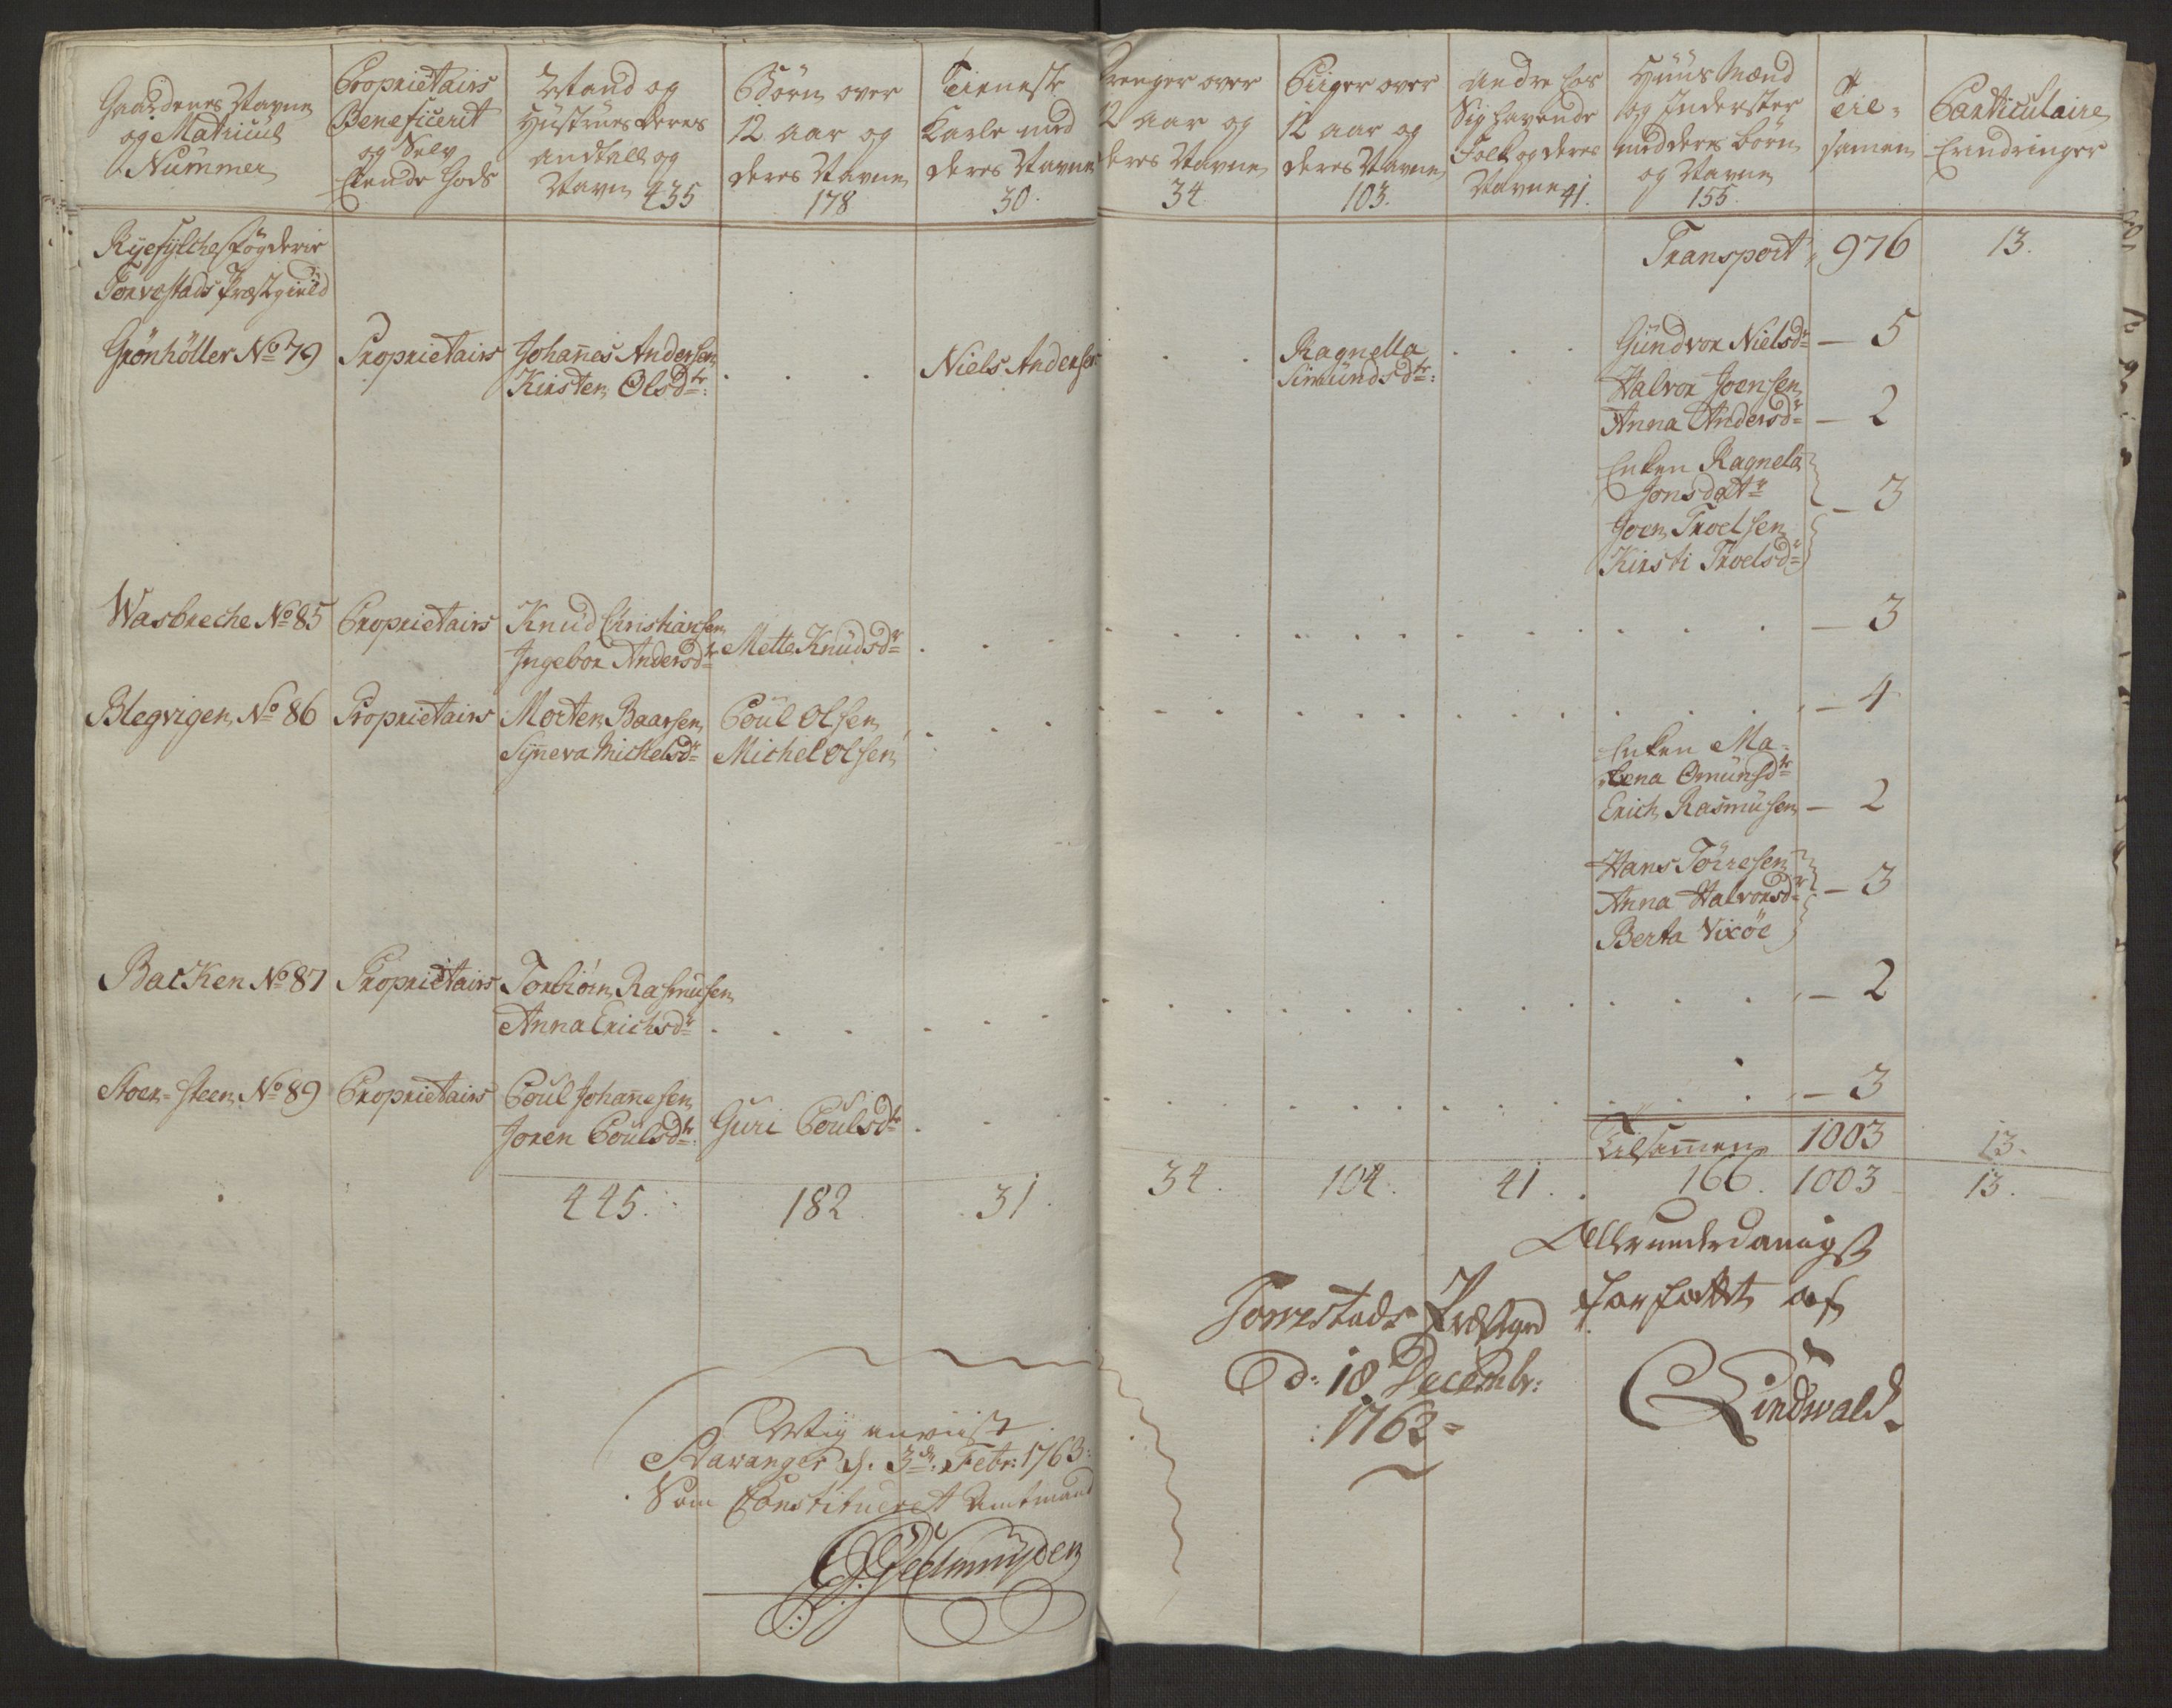 Gaardenes Navne
og Matricul
Nummer
Proprietairs
Beneficerit
og Selv
Eiende Gods
Mand og
Hustrues deres
Andtall og
Navn 435
Börn over
12 aar og
deres Navne
178
Tieneste
Karle med
deres Navne
30.
Drenger over
12 aar og
deres Navne
34.
Piiger over
12 aar og
deres Navne
103.
Andre hos
Sig havende
Folk og deres
Navne 41.
Huus Mænd
og Inderster
med deres börn
og Navne
155.
Til-
samen
Particulaire
Erindringer
Ryefylches fögderie
Torvestads Præstegield
Transport 976 13.
Grönhöller No 79 Proprietairs Johannes Andersen Niels Andersen Ragnella Gundvor Nielsdr — 5
Kirsten Olsdtr: Simundsdtr:
Halvor Joensen
Anna Andersdr — 2
Enken Ragnela
Jonsdattr — 3
Joen Troelsen
Kirsti Troelsdr
Wasbreche No 85 Proprietairs Knud Christiansen — 3
Ingebor Andersdr Mette Knudsdr
Blegvigen No 86 Proprietairs Morten Baarsen Poul Olsen — 4
Syneva Michelsdr Michel Olsen
Enken Ma-
lena Omunsdtr
Erich Rasmusen — 2
Hans Törresen
Anna Halvorsdr — 3
Berta Vixöe
Backen No 87 Proprietairs Torbiörn Rasmusen — 2
Anna Erichsdr
Stoer-steen No 89 Proprietairs Poul Johannesen — 3
Joren Poulsdtr: Guri Poulsdtr
Tilsammen 1003 13.
445. 182 31. 34. 104. 41. 166. 1003 13.
Allerunderdanigst
forfattet af
Lindwald
Torvestads Præstegrd
d: 18 Decembr:
1762
Stavanger d. 3de Febr: 1763:
Som Constitueret Amtmand